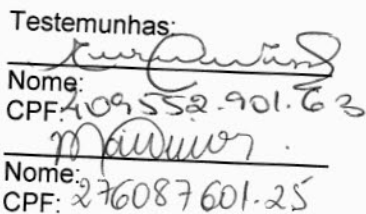 Testemunhas:
Nome:
CPF: 409552.901.63
Nome:
CPF: 276087601-25